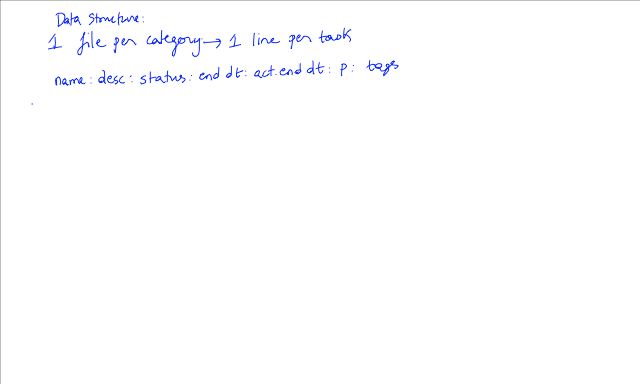 Data Structure:
1 file per category → 1 line per task
name: desc: status: end dt: act.end dt: p: tags